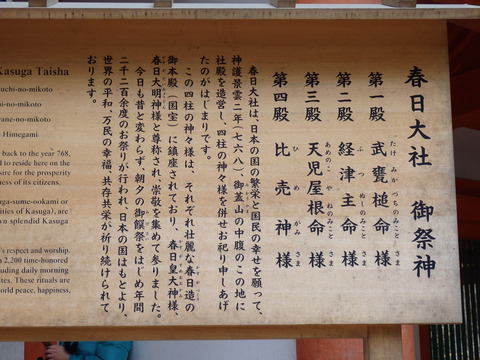 春日大社　御祭神
第一殿　武甕槌命様
たけみかづちのみこと　さま
第二殿　経津主命様
ふつぬしのみこと　さま
第三殿　天児屋根命様
あめのこやねのみこと　さま
第四殿　比売神様
ひめがみ　さま
春日大社は、日本の国の繁栄と国民の幸せを願って、
神護景雲二年（七六八）、御蓋山の中腹のこの地に
社殿を造営し、四柱の神々様を併せお祀り申しあげ
たのがはじまりです。
この四柱の神々様は、それぞれ壮麗な春日造の
御本殿（国宝）に鎮座されており、春日皇大神様、
春日大明神様と尊称され、崇敬を集めて参りました。
今日も昔と変わらず、朝夕の御饌祭をはじめ年間
二千二百余度のお祭りが行われ、日本の国はもとより、
世界の平和、万民の幸福、共存共栄が祈り続けられて
おります。
Kasuga Taisha
uchi-no-mikoto
hi-no-mikoto
yane-no-mikoto
Himegami
back to the year 768,
d to reside here on the
sire for the prosperity
ness of its citizens.
ga-sume-ookami or
ities of Kasuga), are
wn splendid Kasuga
's respect and worship.
n 2,200 time-honored
cluding daily morning
tes. These rituals are
orld peace, happiness,